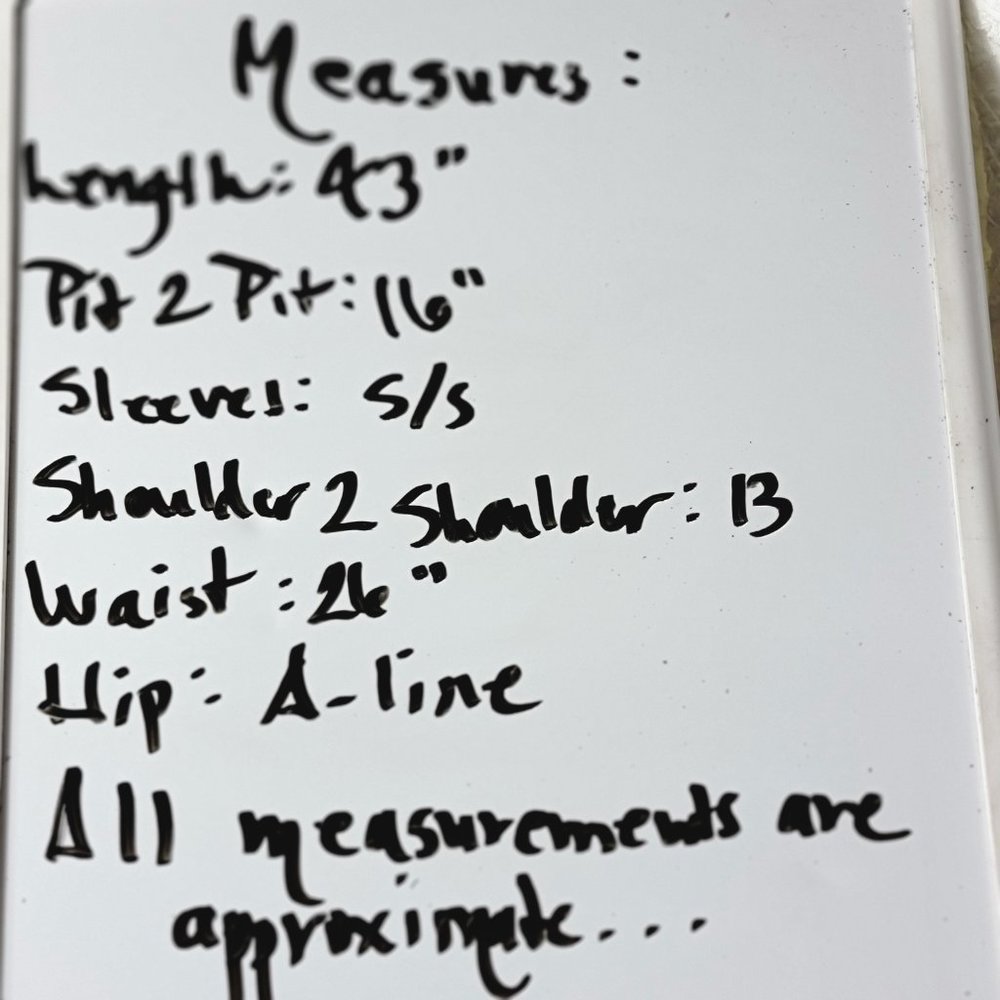 Measures:
Length: 43"
Pit 2 Pit: 16"
Sleeves: S/S
Shoulder 2 Shoulder: 13
Waist: 26"
Hip: A-line
All measurements are
approximate...